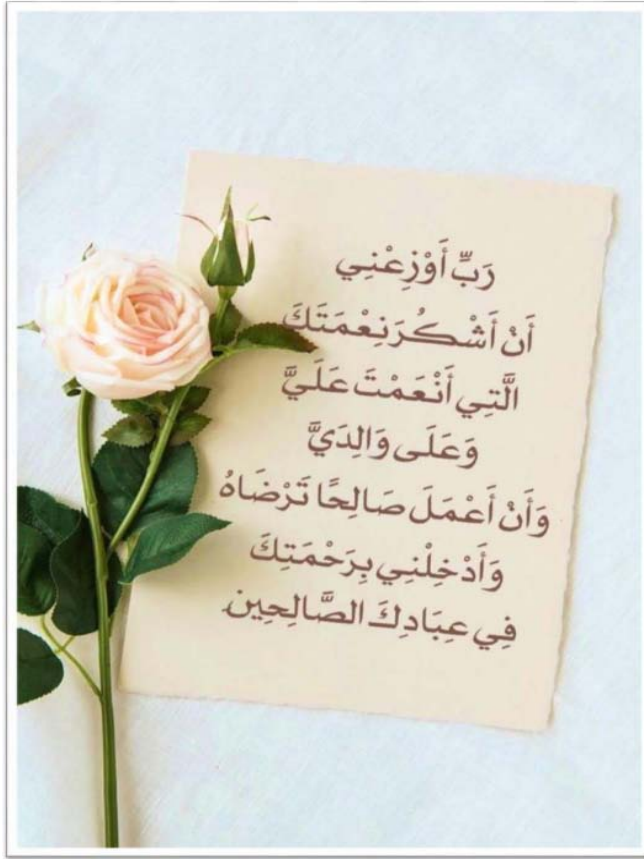 رَبِّ أَوْزِعْنِي
أَنْ أَشْكُرَ نِعْمَتَكَ
الَّتِي أَنْعَمْتَ عَلَيَّ
وَعَلَى وَالِدَيَّ
وَأَنْ أَعْمَلَ صَالِحًا تَرْضَاهُ
وَأَدْخِلْنِي بِرَحْمَتِكَ
فِي عِبَادِكَ الصَّالِحِينَ